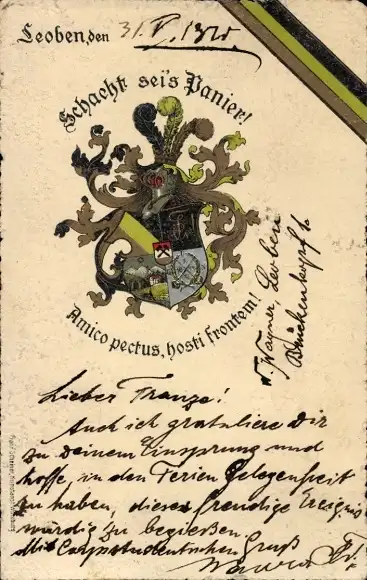 Leoben, den 31. V.
Schacht sei's Panier!
Amico pectus, hosti frontem!
Wagner, Leoben
Brückenkopf 1
Lieber Franze!
Auch ich gratuliere Dir
zu deinem Einsprung und
hoffe, in den Ferien Gelegenheit
zu haben, dieses freudige Ereignis
würdig zu begießen.
Mit Corpsstudentischem Gruß